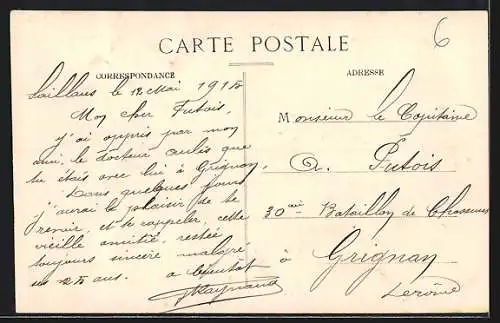 6
CARTE POSTALE
CORRESPONDANCE
ADRESSE
Saillans le 12 Mai 1915
Mon cher Putois,
j'ai appris par mon
ami, le docteur que
tu étais avec lui à Grignan.
Dans quelques jours
j'aurai le plaisir de te
revoir, et te rappeler, cette
vieille amitié, restée
toujours sincère malgré
les 25 ans.
a bientôt
Raynaud
Monsieur le Capitaine
A. Putois
30 Bataillon de Chasseurs
à Grignan